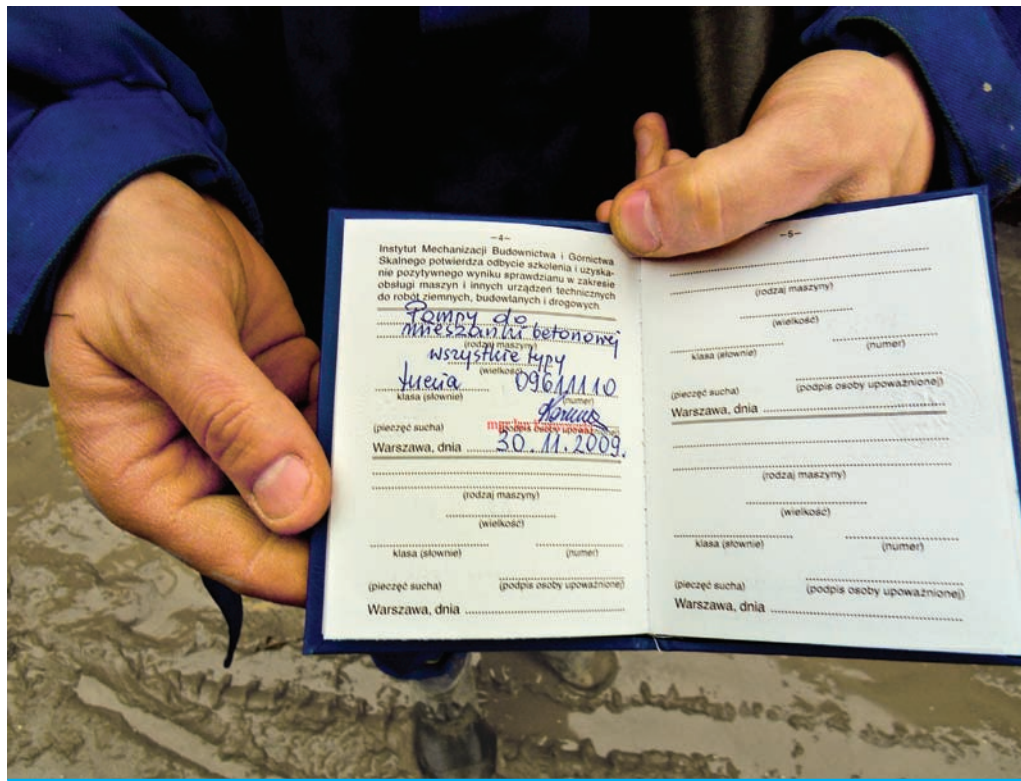 –4–
Instytut Mechanizacji Budownictwa i Górnictwa
Skalnego potwierdza odbycie szkolenia i uzyska-
nie pozytywnego wyniku sprawdzianu w zakresie
obsługi maszyn i innych urządzeń technicznych
do robót ziemnych, budowlanych i drogowych.
Pompy do
mieszanki betonowej
(rodzaj maszyny)
wszystkie typy
(wielkość)
trzecia 09611110
klasa (słownie) (numer)
(pieczęć sucha) (podpis osoby
Warszawa, dnia 30.11.2009.
(rodzaj maszyny)
(wielkość)
klasa (słownie) (numer)
(pieczęć sucha) (podpis osoby upoważnionej)
Warszawa, dnia
–5–
(rodzaj maszyny)
(wielkość)
klasa (słownie) (numer)
(pieczęć sucha) (podpis osoby upoważnionej)
Warszawa, dnia
(rodzaj maszyny)
(wielkość)
klasa (słownie) (numer)
(pieczęć sucha) (podpis osoby upoważnionej)
Warszawa, dnia